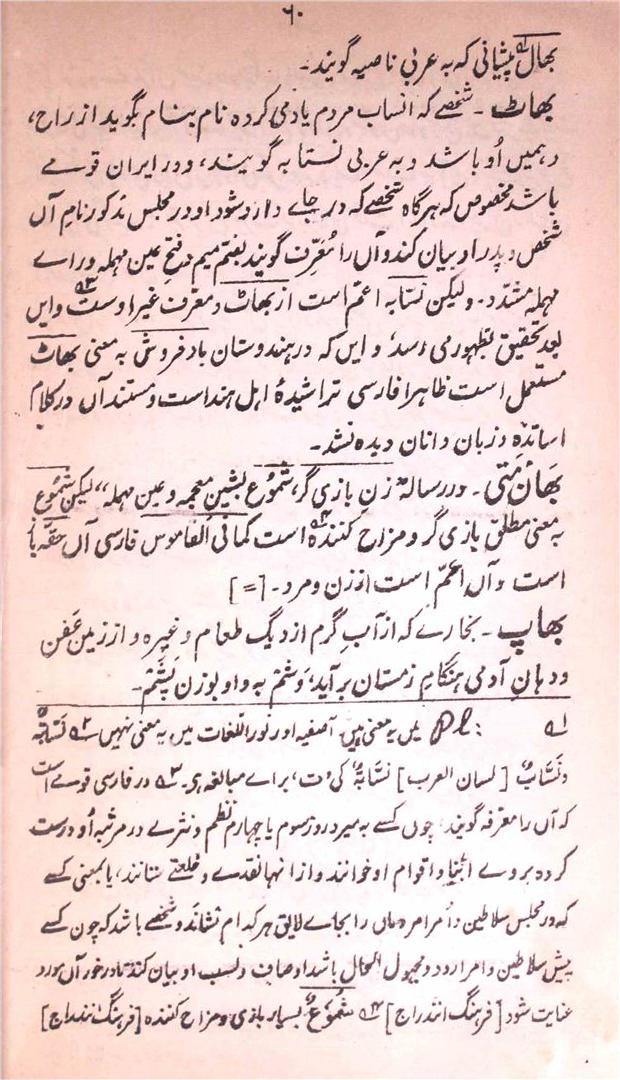 ۶۰
بھال پیشانی کہ بہ عربی ناصیہ گویند۔
بھاٹ۔ شخصے کہ انساب مردم یاد می کردہ نام بنام بگوید از راح،
و ہمیں اُو باشد و بہ عربی نسّابہ گویند، و در ایران قومے
باشد مخصوص کہ ہرگاہ شخصے کہ در جاے وارد شود او در مجلس مذکور نام آں
شخص و پدر او بیان کند و آں را مُعَرِّف گویند بضم میم و فتح عین مہملہ و راے
مہملہ مشدّد۔ ولیکن نسّابہ اعم است از بھاٹ و معرف غیر اوست ۳؎ وایں
بعد تحقیق بظہور می رسد، و ایں کہ در ہندوستان بادفروش بہ معنی بھاٹ
مستعمل است ظاہرا فارسی تراشیدۂ اہل ہند است و مستند آں در کلام
اساتذہ و زبان دانان دیدہ نشد۔
بھانمتی۔ در رسالہ زن بازی گر، شَمُوع بشین معجمہ و عین مہملہ،، لیکن شَمُوع
بہ معنی مطلق بازی گر و مزاح کنندہ ۴؎ است کمافی القاموس فارسی آں حقہ باز
است و آں اعمّ است از زن و مرد۔ [=]
بھاپ۔ بخارے کہ از آب گرم از دیگ طعام و غیرہ و از زمین عَفَن
و دہان آدمی ہنگام زمستان بر آید، وَشَم بہ واو بوزن پَشَم۔
۱؎ Pl: میں یہ معنی ہیں۔ آصفیہ اور نوراللغات میں یہ معنی نہیں ۲؎ نَسّابَۃٌ
و نَسّابٌ [لسان العرب] نَسّابَۃٌ کی ۃ، براے مبالغہ ہے۔ ۳؎ در فارسی قومے است
کہ آں را معرفہ گویند، چوں کسے بہ میرد روز سوم یا چہارم نظم و نثرے در مرثیہ اُو درست
کردہ بروے ابنا و اقوام او خوانند و از انہا نقدے و خلعتے ستانند، یا بمعنی کسے
کہ در مجلس سلاطین و امرا مردماں را بجاے لایق ہر کدام نشاند و شخصے باشد کہ چون کسے
پیش سلاطین و امرا رود و مجہول الحال باشد اوصاف و نسب او بیان کند تا درخور آں مورد
عنایت شود [فرہنگ انندراج] ۴؎ شَمُوعٌ بسیار بازی و مزاح کنندہ [فرہنگ انندراج]